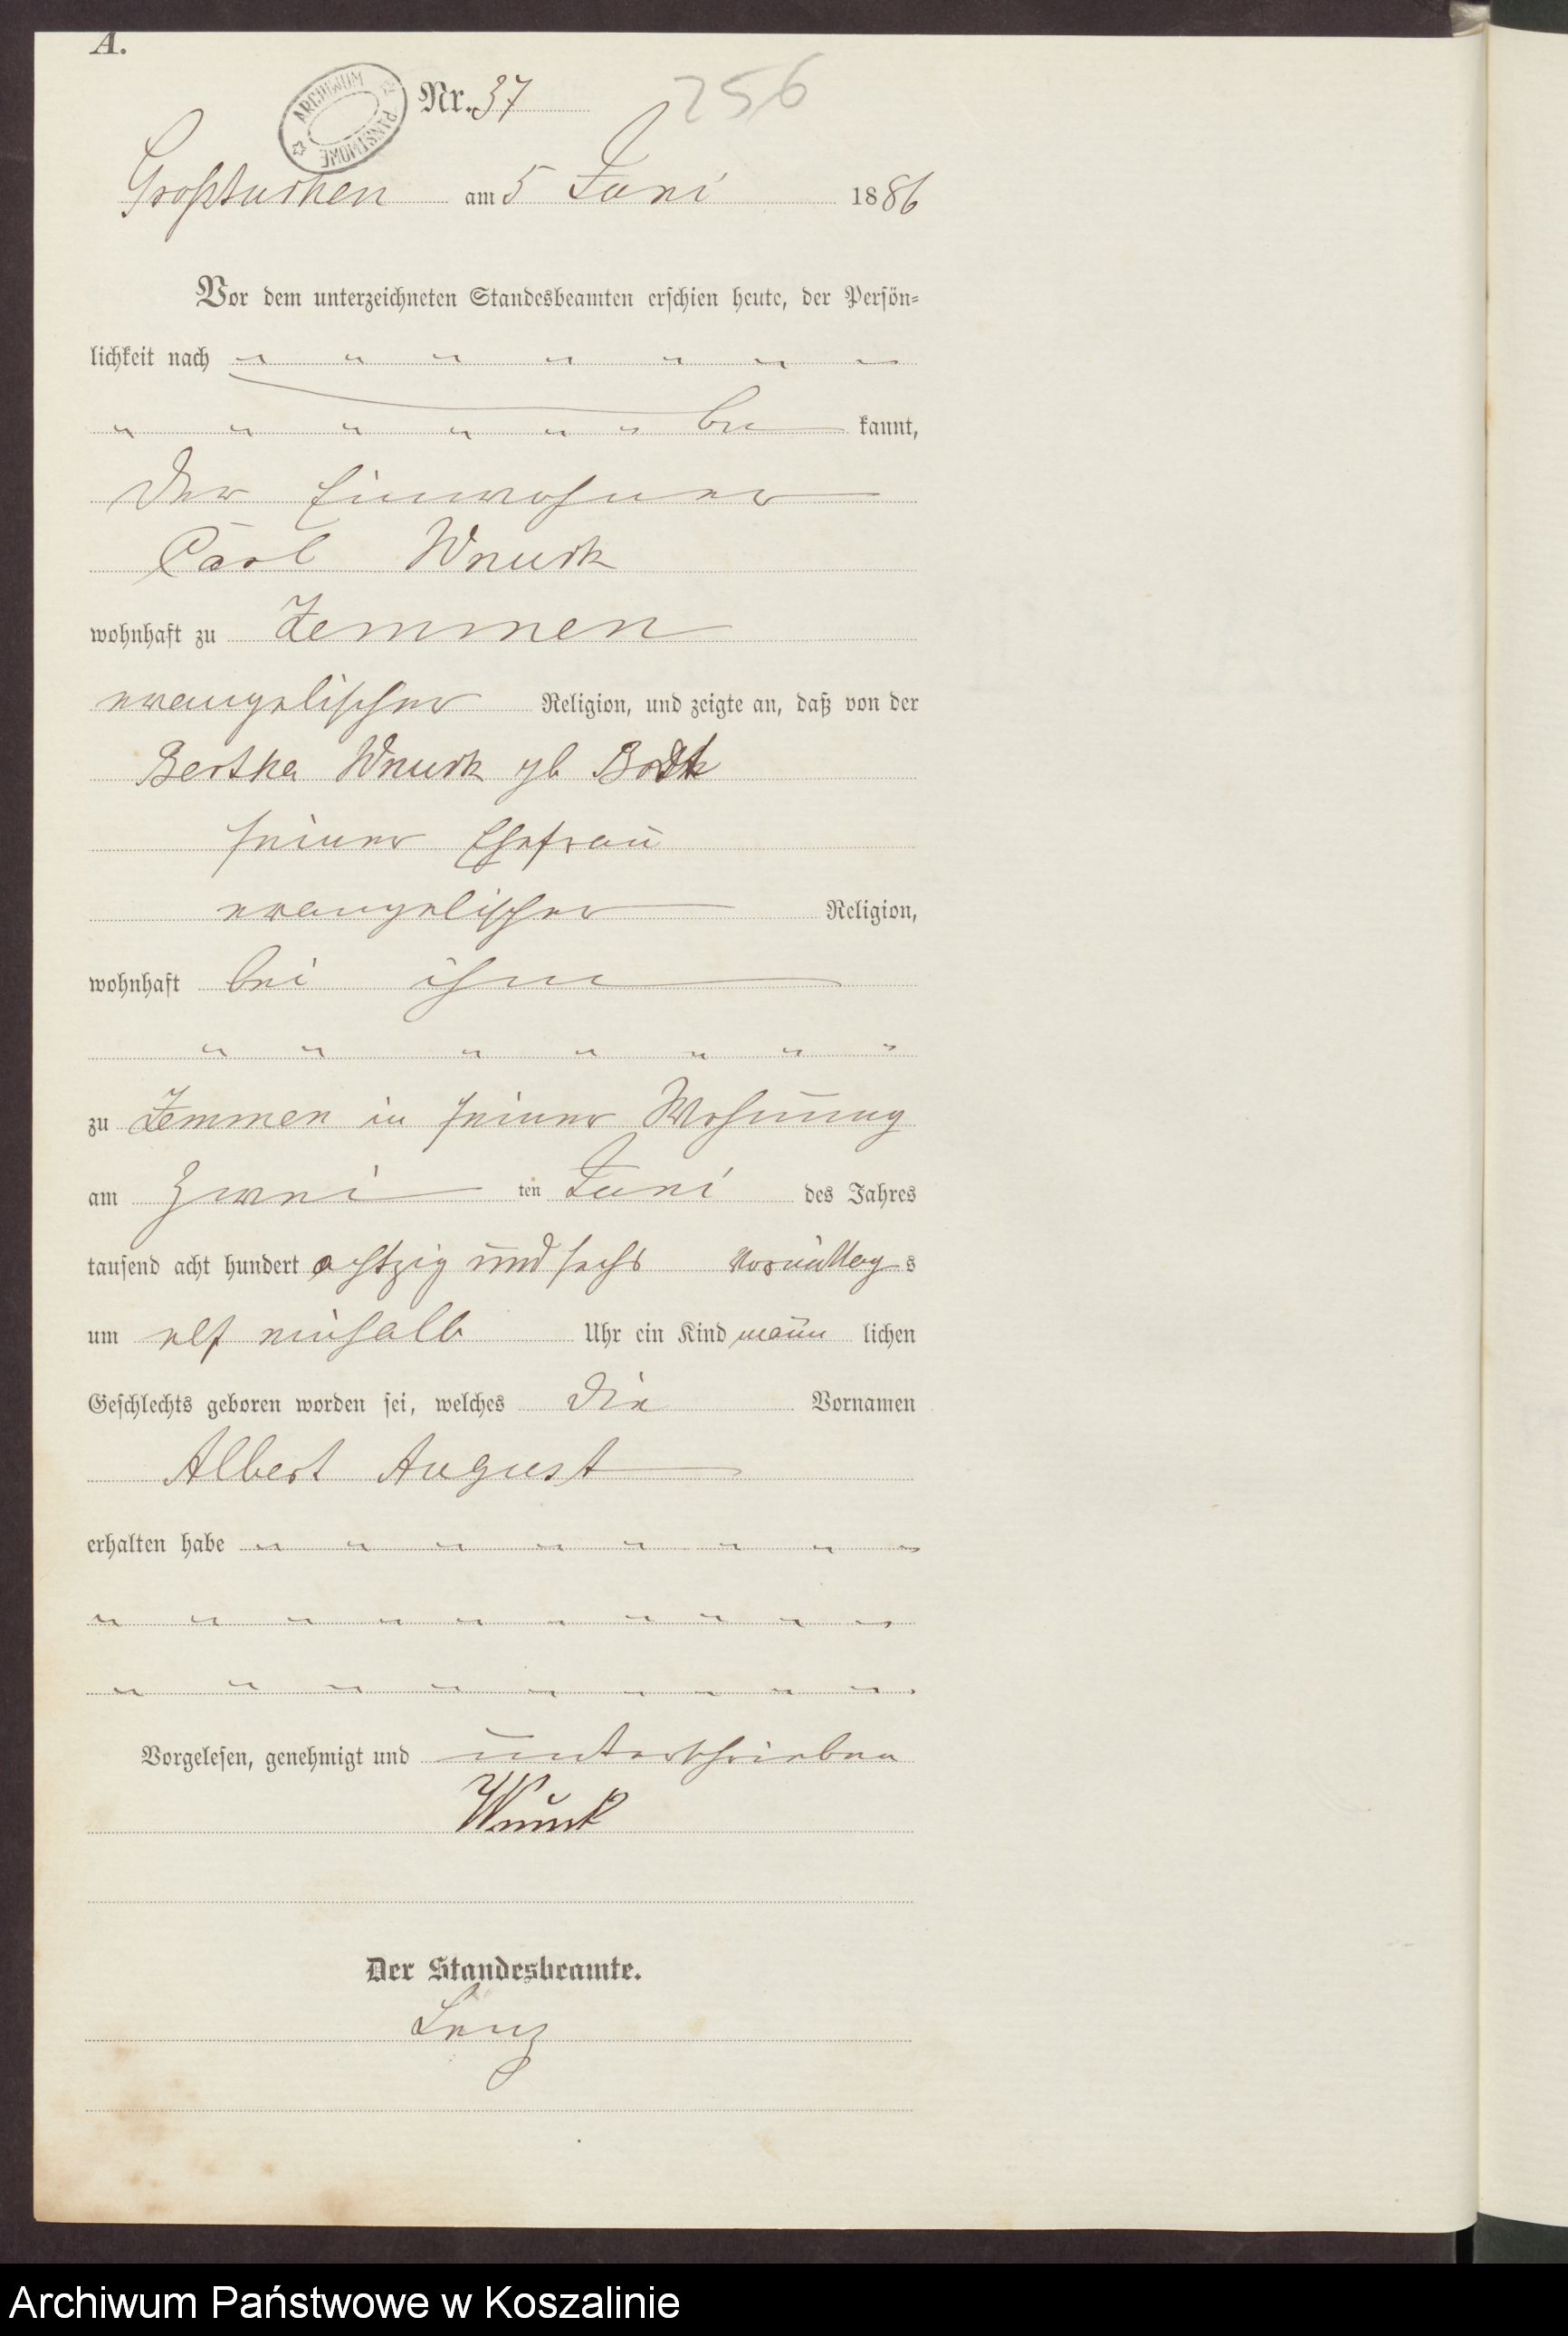 A.
ARCHIWUM PAŃSTWOWE
Nr. 37
256
Großtuchen am 5 Juni 1886
Vor dem unterzeichneten Standesbeamten erschien heute, der Persön-
lichkeit nach " " " " " " "
" " " " " " be kannt,
der Einwohner
Carl Wnuck
wohnhaft zu Zemmen
evangelischer Religion, und zeigte an, daß von der
Bertha Wnuck gb
seiner Ehefrau
evangelischer Religion,
wohnhaft bei ihm
" " " " " " "
zu Zemmen in seiner Wohnung
am zwei ten Juni des Jahres
tausend acht hundert achtzig und sechs Vormittag s
um elf einhalb Uhr ein Kind männ lichen
Geschlechts geboren worden sei, welches die Vornamen
Albert August
erhalten habe " " " " " " " "
" " " " " " " " " "
" " " " " " " " "
Vorgelesen, genehmigt und unterschrieben
Wnuck
Der Standesbeamte.
Lenz
Archiwum Państwowe w Koszalinie